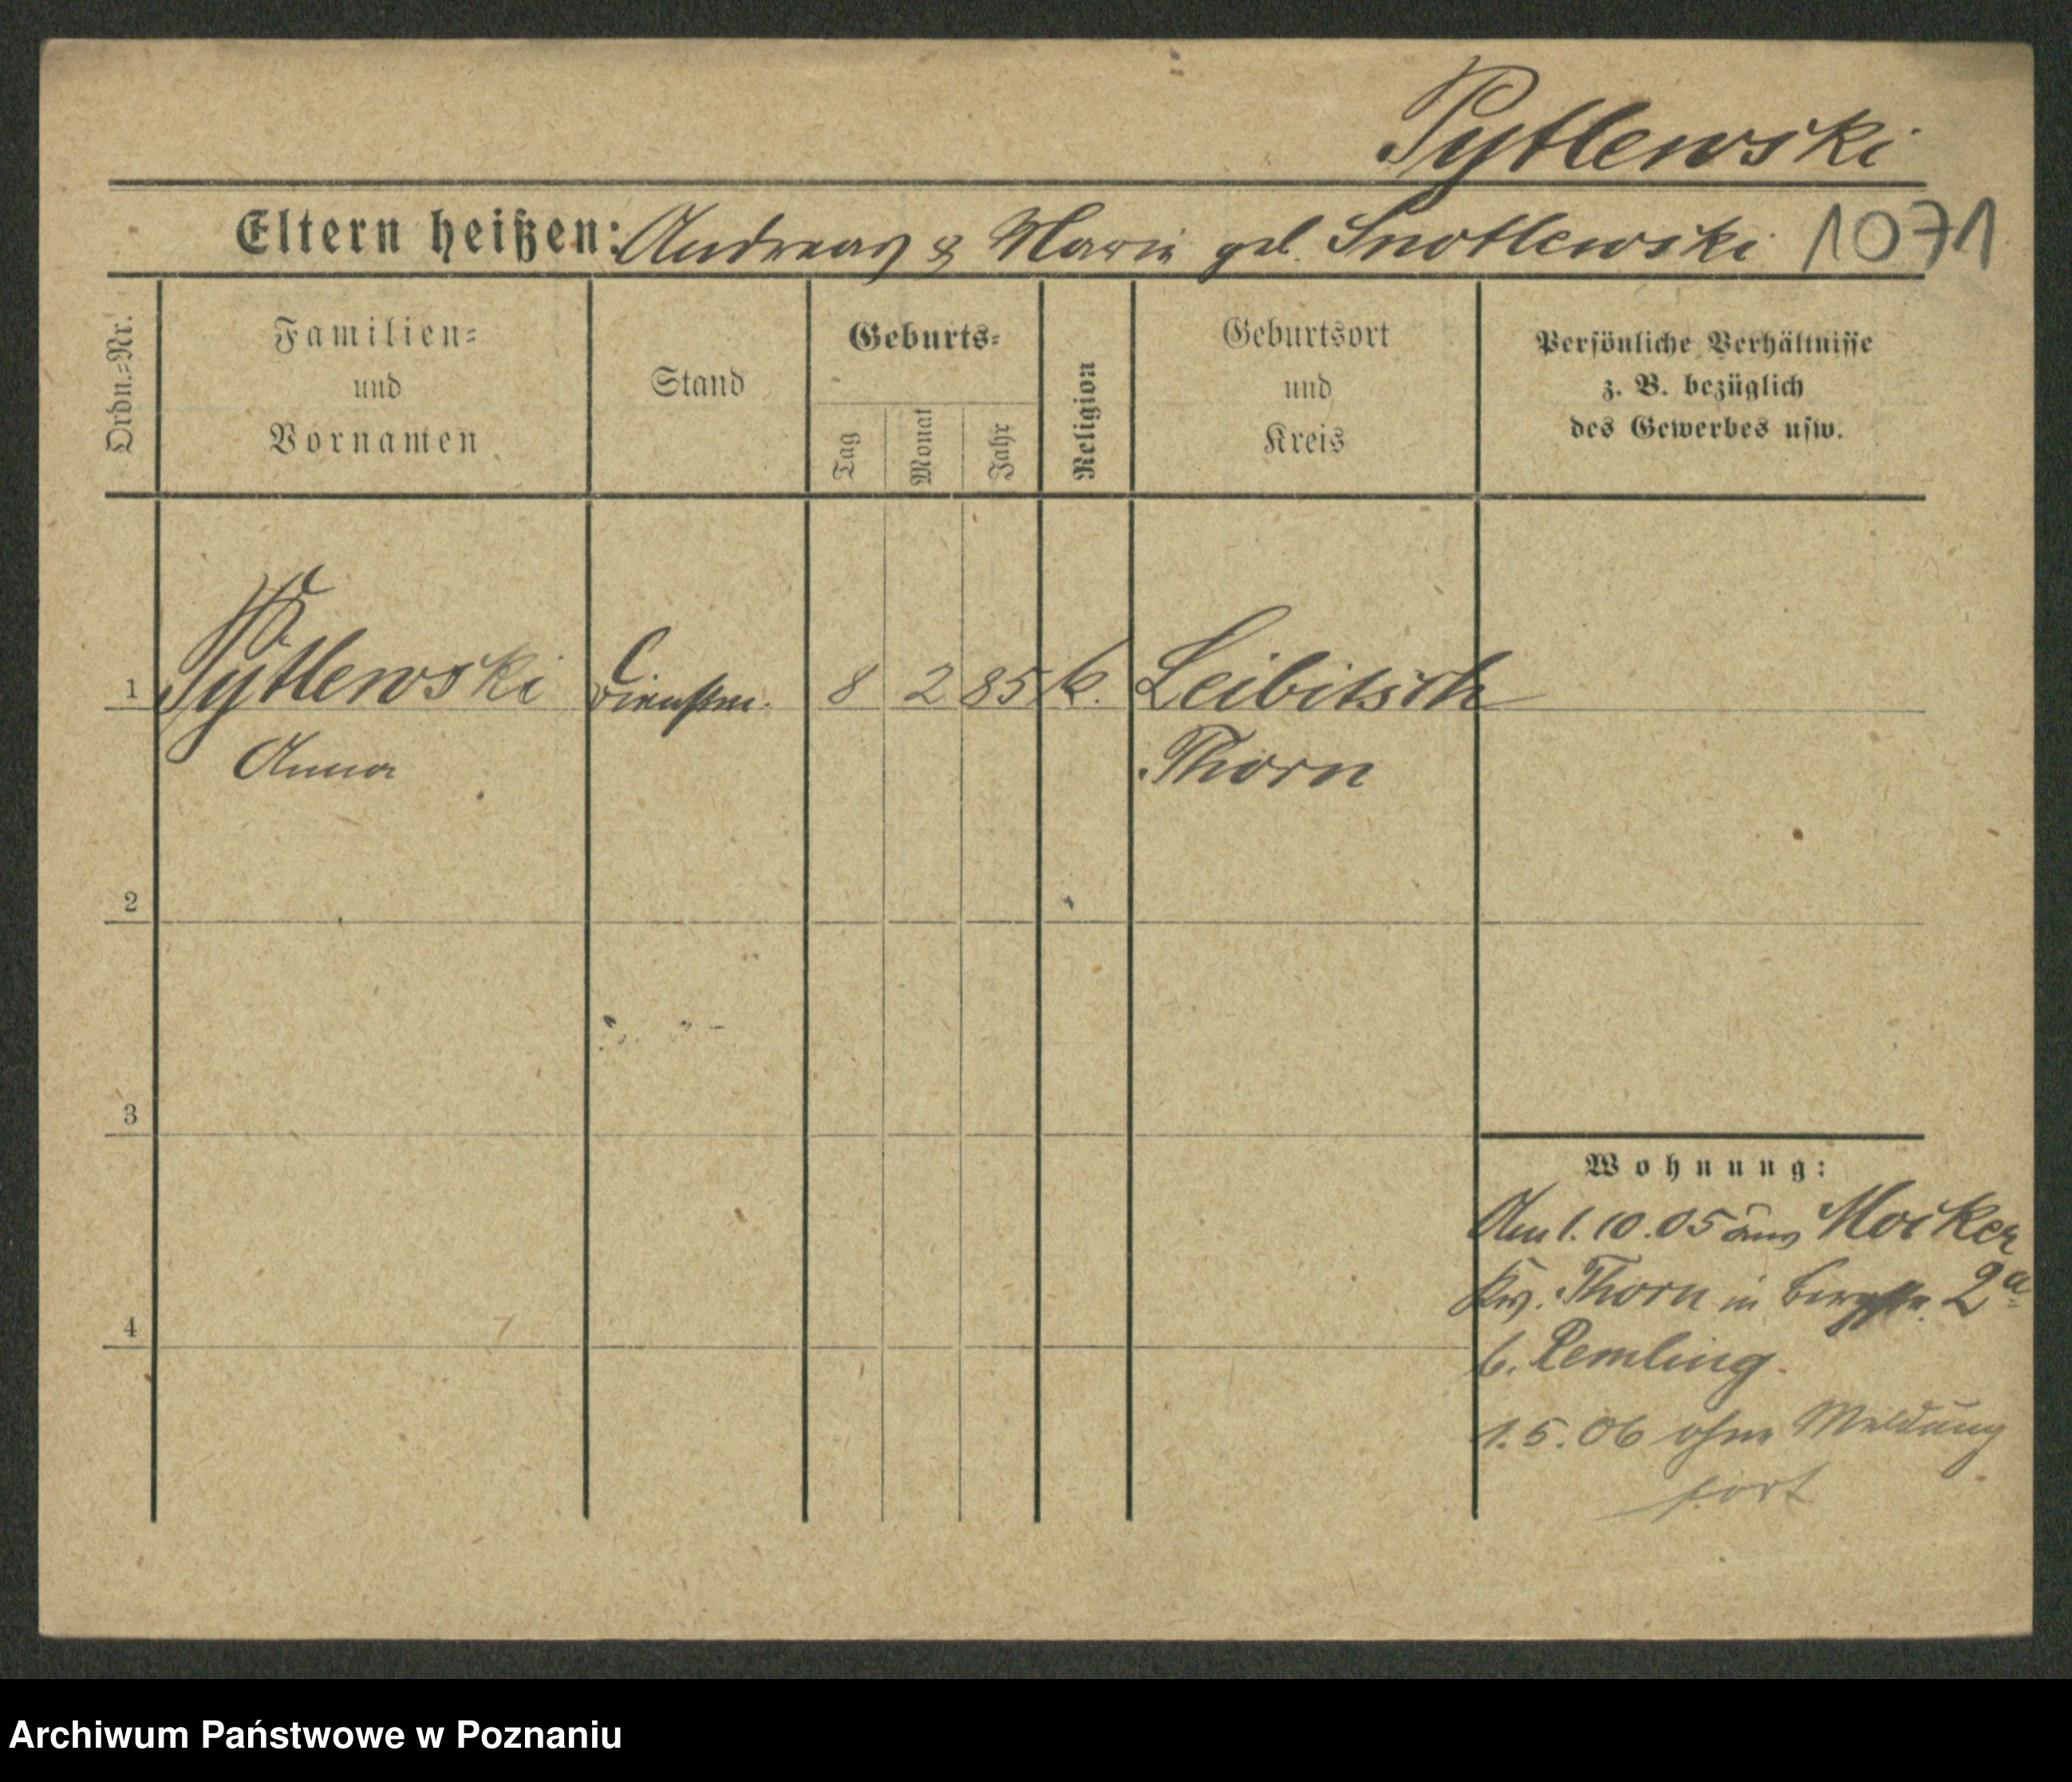 Pytlewski
Eltern heißen: Andreas & Marie geb. Snotlewski 1071
Ordn.-Nr.
Familien-
und
Vornamen
Stand
Geburts-
Tag
Monat
Jahr
Religion
Geburtsort
und
Kreis
Persönliche Verhältnisse
z. B. bezüglich
des Gewerbes usw.
1 Pytlewski Dienstm. 8 2 85 k. Leibitsch
Anna Thorn
2
3
4
Wohnung:
Am 1.10.05 aus Mocker
Krs. Thorn in Bergstr. 2a
b. Remling.
1.5.06 ohne Meldung
fort
Archiwum Państwowe w Poznaniu